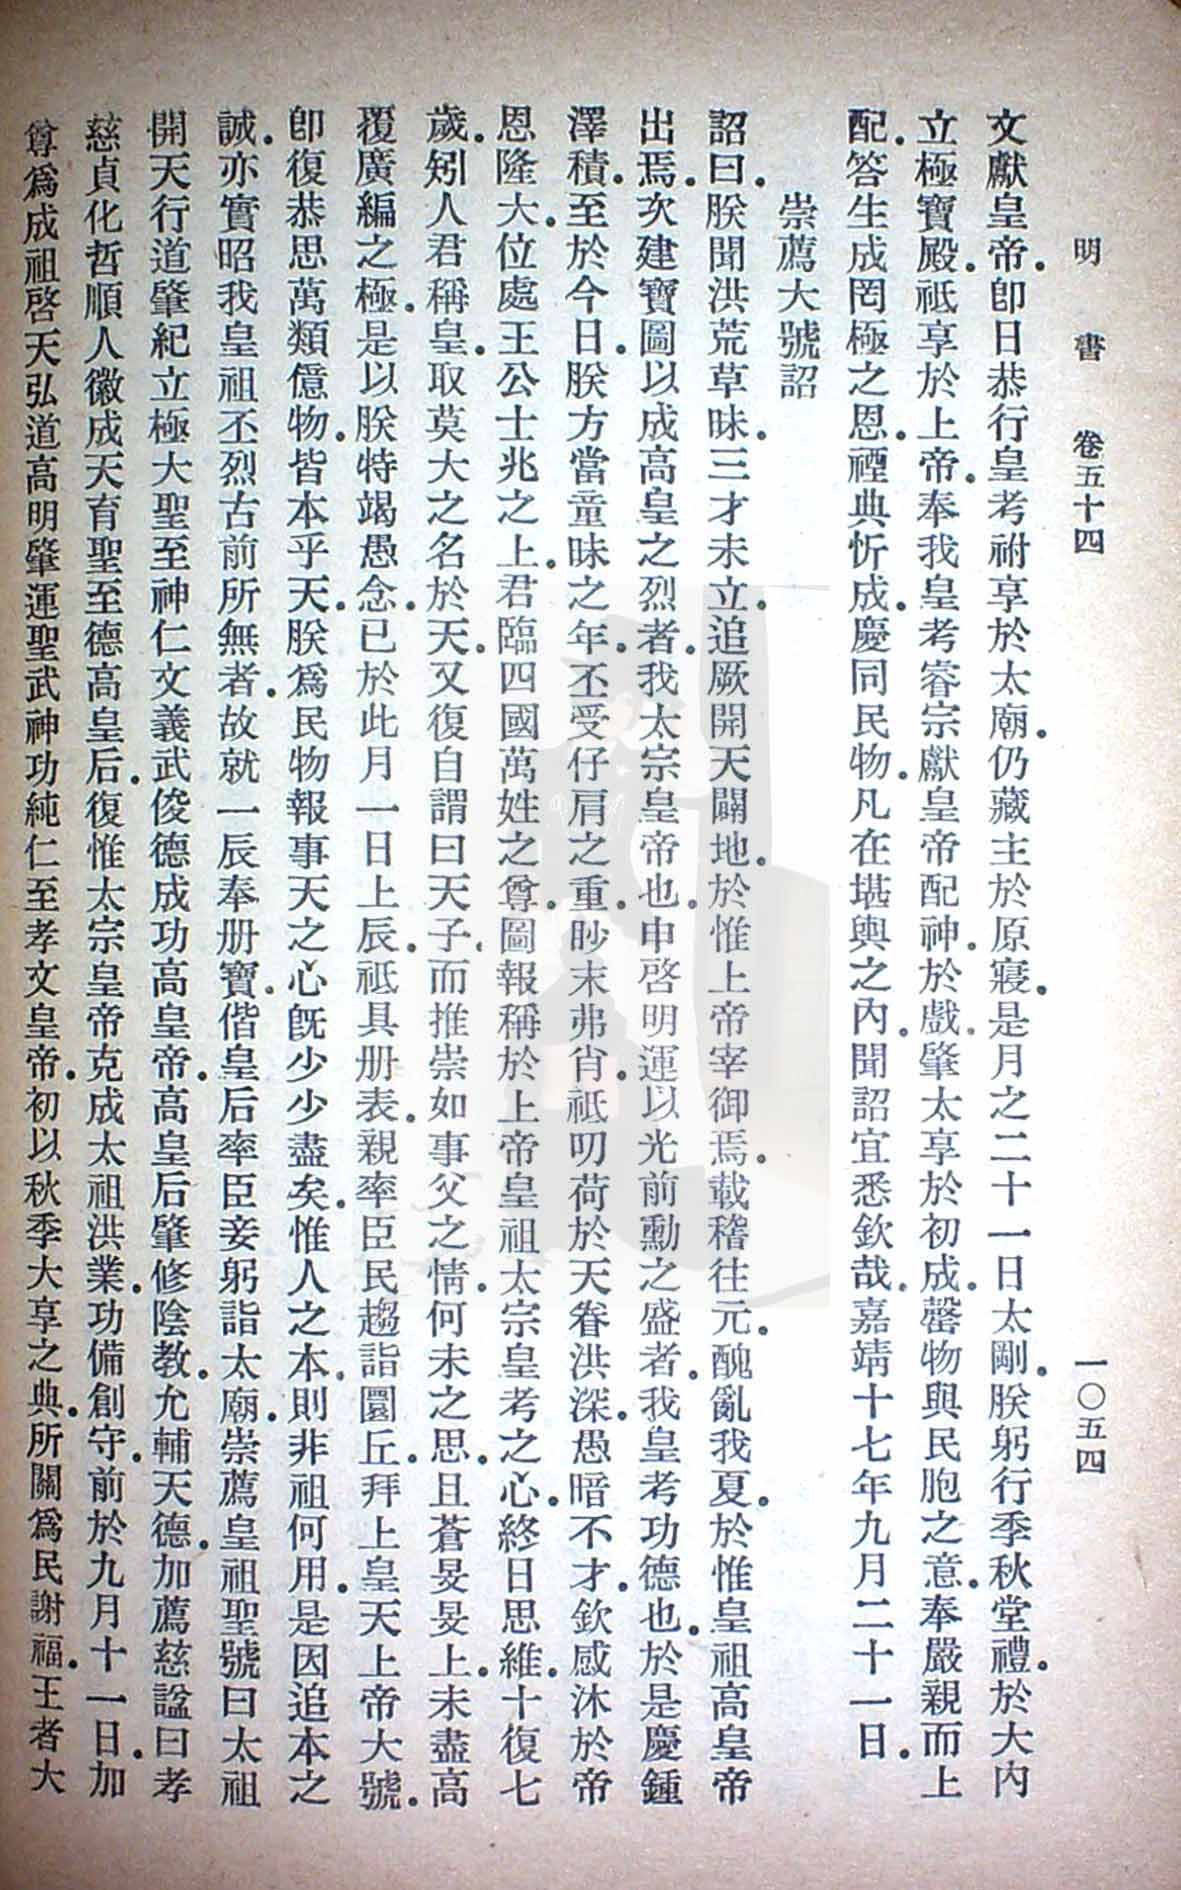 明書 卷五十四 一〇五四
文獻皇帝。卽日恭行皇考祔享於太廟。仍藏主於原寢。是月之二十一日太剛。朕躬行季秋堂禮。於大內
立極寶殿。祗享於上帝。奉我皇考睿宗獻皇帝配神。於戲。肇太享於初成。罄物與民胞之意。奉嚴親而上
配。答生成罔極之恩。禋典忻成。慶同民物。凡在堪輿之內。聞詔宜悉欽哉。嘉靖十七年九月二十一日。
崇薦大號詔
詔曰。朕聞洪荒草昧。三才未立。追厥開天闢地。於惟上帝宰御焉。載稽往元。醜亂我夏。於惟皇祖高皇帝
出焉。次建寶圖以成高皇之烈者。我太宗皇帝也。申啓明運以光前勳之盛者。我皇考功德也。於是慶鍾
澤積。至於今日。朕方當童昧之年。丕受仔肩之重。眇末弗肖。祗叨荷於天眷洪深。愚暗不才。欽感沐於帝
恩隆大。位處王公士兆之上。君臨四國萬姓之尊。圖報稱於上帝皇祖太宗皇考之心。終日思維。十復七
歲。矧人君稱皇。取莫大之名於天。又復自謂曰天子。而推崇如事父之情。何未之思。且蒼旻旻上。未盡高
覆廣編之極。是以朕特竭愚念。已於此月一日上辰。祗具册表。親率臣民趨詣圜丘。拜上皇天上帝大號。
卽復恭思萬類億物。皆本乎天。朕爲民物報事天之心旣少少盡矣。惟人之本。則非祖何用。是因追本之
誠。亦實昭我皇祖丕烈古前所無者。故就一辰奉册寶。偕皇后率臣妾躬詣太廟。崇薦皇祖聖號曰太祖
開天行道肇紀立極大聖至神仁文義武俊德成功高皇帝。高皇后肇修陰教。允輔天德。加薦慈諡曰孝
慈貞化哲順人徽成天育聖至德高皇后。復惟太宗皇帝克成太祖洪業。功備創守。前於九月十一日。加
尊爲成祖啓天弘道高明肇運聖武神功純仁至孝文皇帝。初以秋季大享之典。所關爲民謝福。王者大